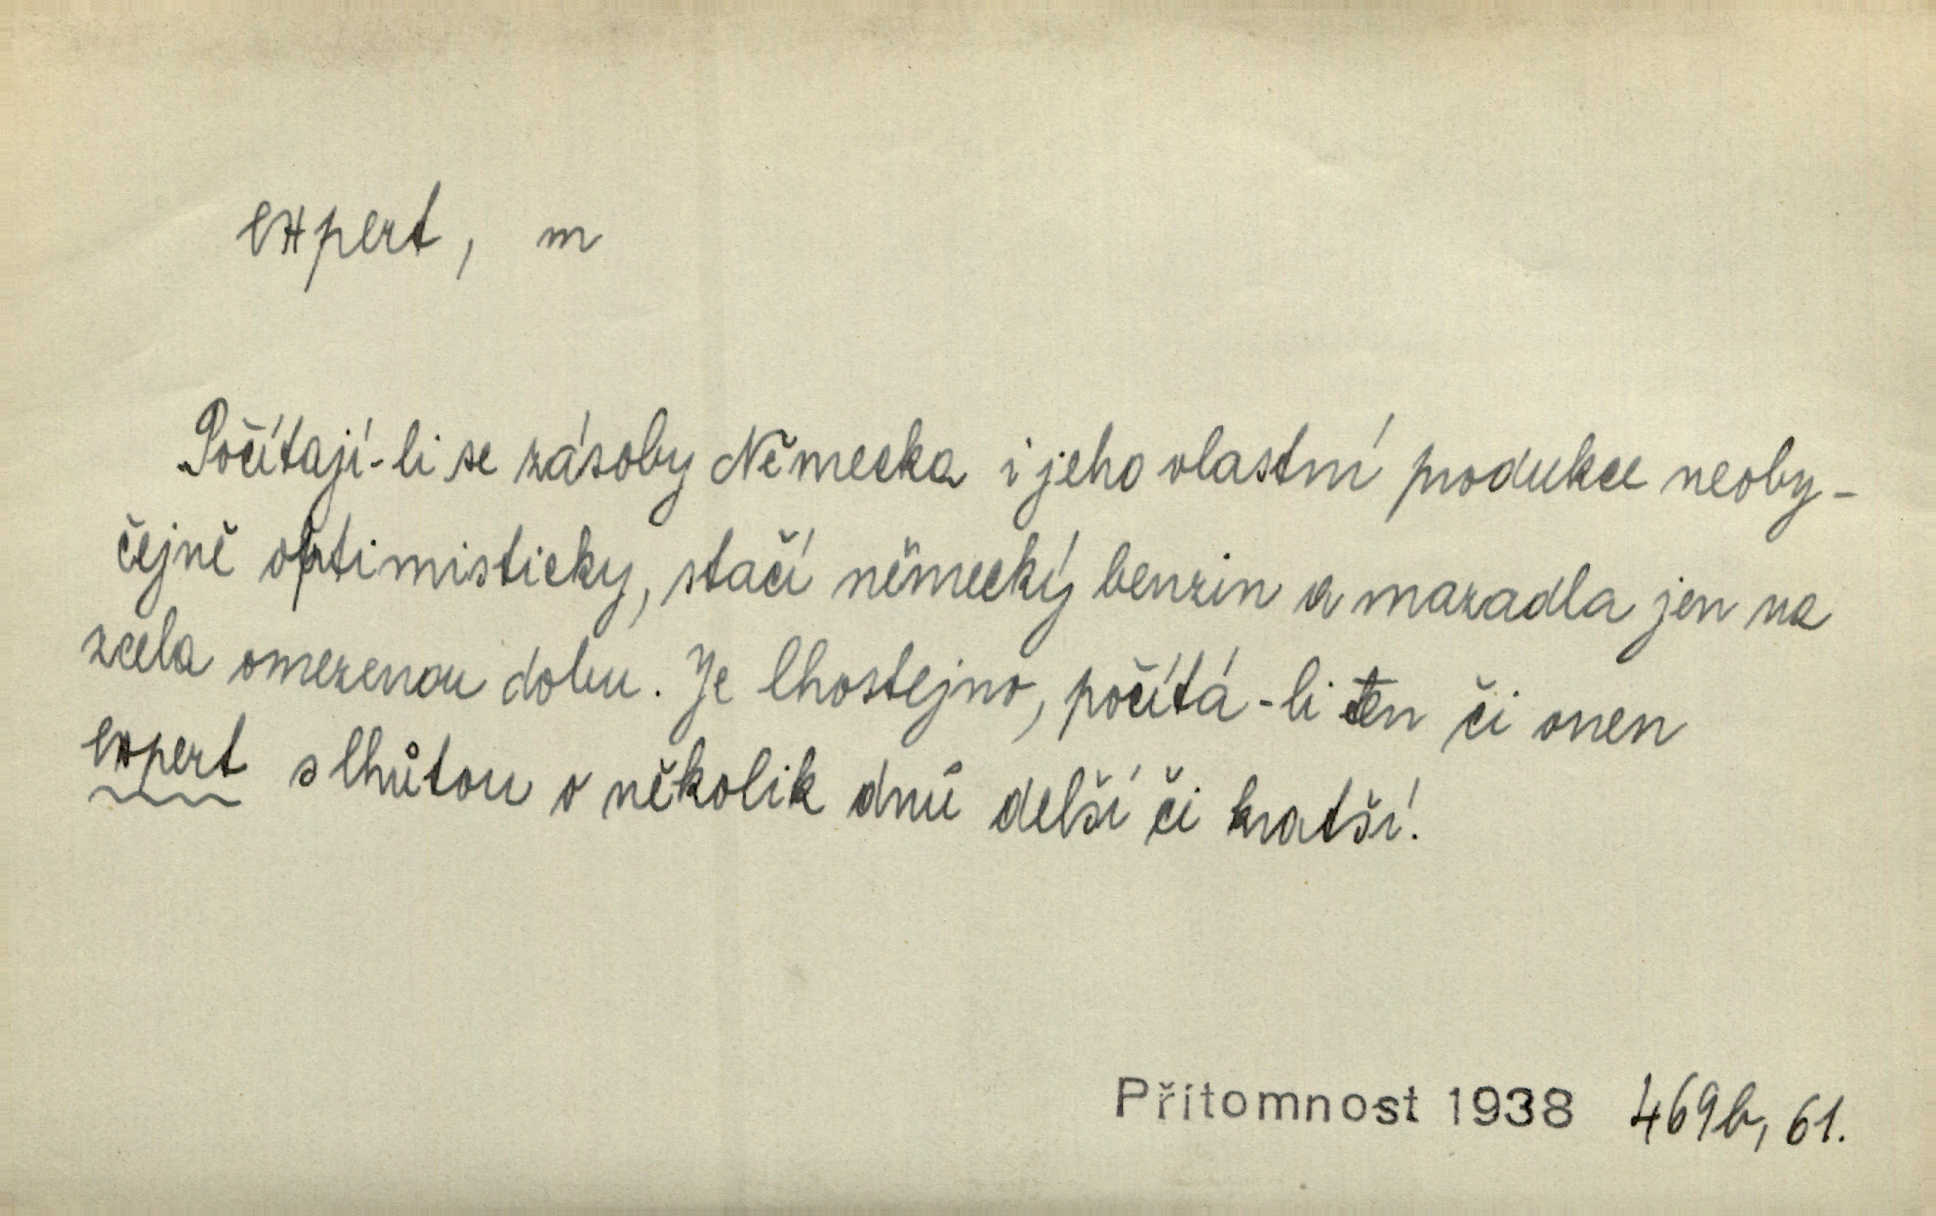 expert, m
Počítají-li se zásoby Německa i jeho vlastní produkce neoby-
čejně optimisticky, stačí německý benzin a mazadla jen na
zcela omezenou dobu. Je lhostejno, počítá-li ten či onen
expert s lhůtou o několik dnů delší či kratší.
Přítomnost 1938 469b, 61.